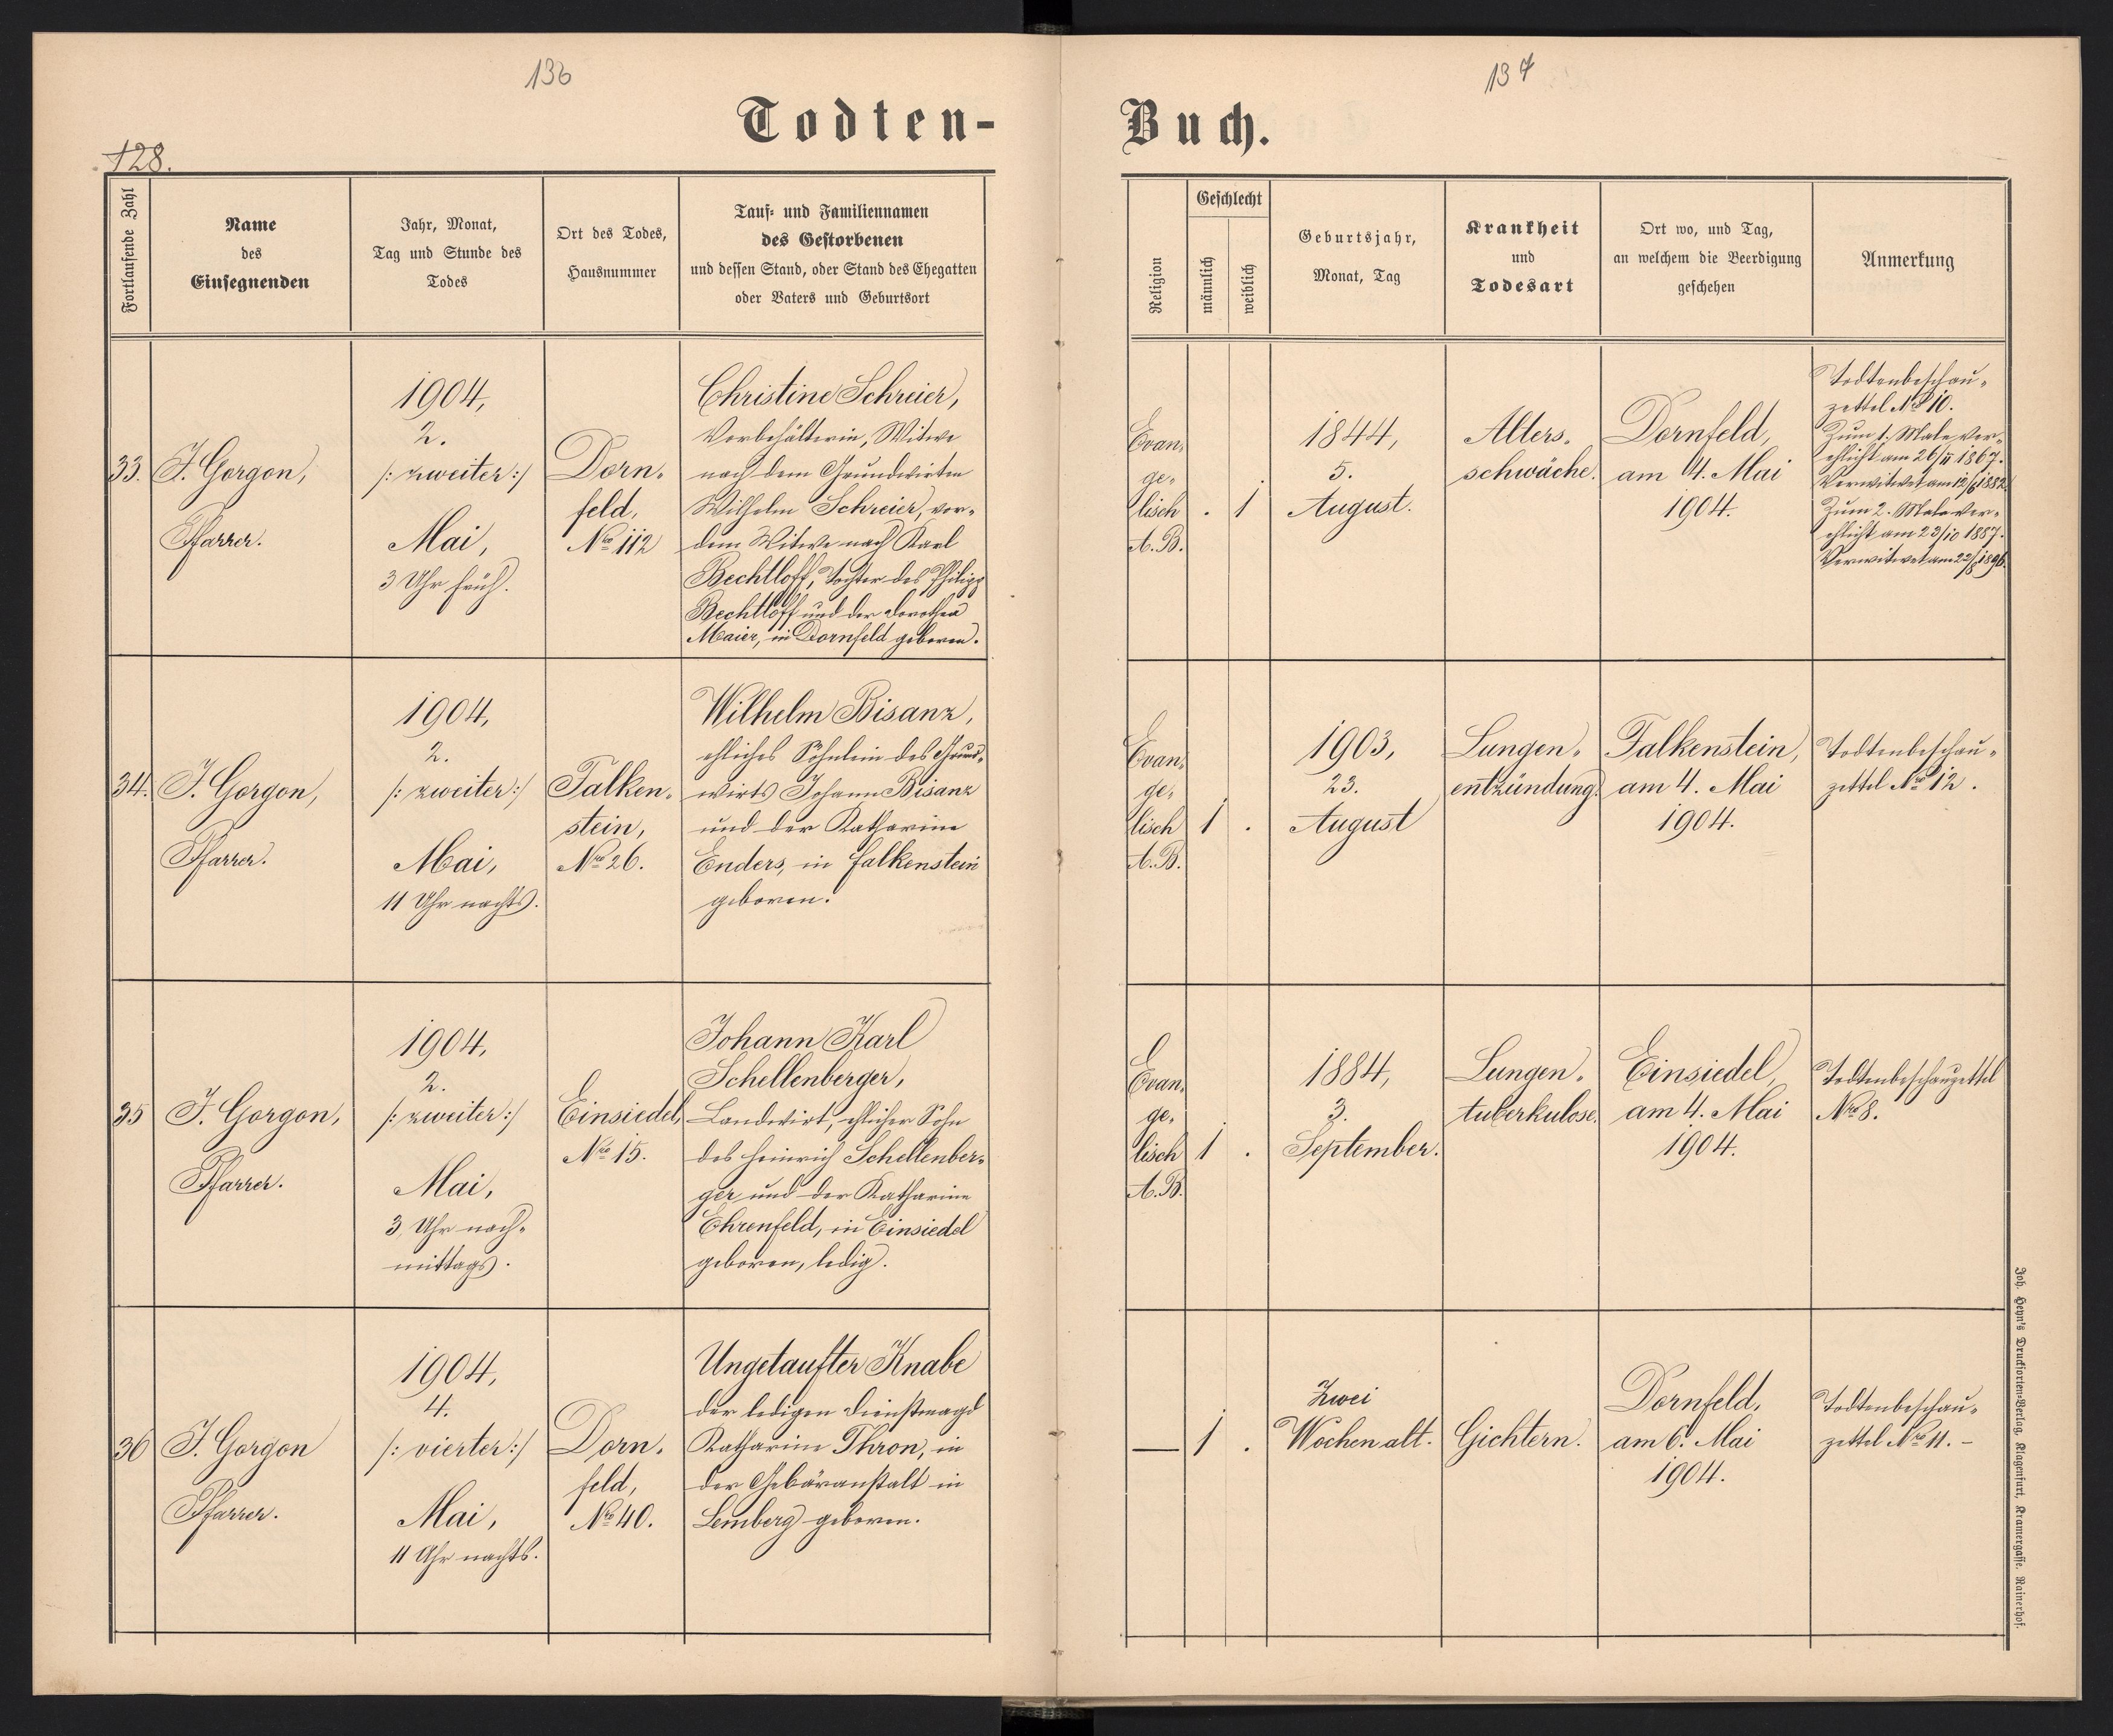 136
137
Todten-
Buch.
128.
Fortlaufende Zahl
Name
des
Einsegnenden
Jahr, Monat,
Tag und Stunde des
Todes
Ort des Todes,
Hausnummer
Tauf- und Familiennamen
des Gestorbenen
und dessen Stand, oder Stand des Ehegatten
oder Vaters und Geburtsort
Religion
Geschlecht
männlich
weiblich
Geburtsjahr,
Monat, Tag
Krankheit
und
Todesart
Ort wo, und Tag,
an welchem die Beerdigung
geschehen
Anmerkung
33.
J. Gorgon,
Pfarrer.
1904,
2.
/: zweiter :/
Mai,
3 Uhr früh.
Dorn-
feld,
Nro 112
Christine Schreier,
Vorbehälterin, Witwe
nach dem Grundwirten
Wilhelm Schreier, vor-
dem Witwe nach Karl
Bechtloff, Tochter des Philipp
Bechtloff und der Dorothea
Maier, in Dornfeld geboren.
Evan-
ge-
lisch
A.B.
. 1
1844,
5.
August.
Alters-
schwäche.
Dornfeld,
am 4. Mai
1904.
Todtenbeschau-
zettel Nro 10.
Zum 1. Male ver-
ehlicht am 26/II 1867.
Verwitwet am 12/6 1882.
Zum 2. Male ver-
ehlicht am 23/10 1887.
Verwitwet am 22/8 1896.
34.
J. Gorgon,
Pfarrer.
1904,
2.
/: zweiter :/
Mai,
11 Uhr nachts.
Falken-
stein,
Nro 26.
Wilhelm Bisanz,
ehliches Söhnlein des Grund-
wirts Johann Bisanz
und der Katharine
Enders, in Falkenstein
geboren.
Evan-
ge-
lisch
A.B.
1 .
1903,
23.
August
Lungen-
entzündung.
Falkenstein,
am 4. Mai
1904.
Todtenbeschau-
zettel Nro 12.
35
J. Gorgon,
Pfarrer.
1904,
2.
/: zweiter :/
Mai,
3 Uhr nach-
mittags.
Einsiedel,
Nro 15.
Johann Karl
Schellenberger,
Landwirt, ehlicher Sohn
des Heinrich Schellenber-
ger und der Katharine
Ehrenfeld, in Einsiedel
geboren, ledig.
Evan-
ge-
lisch
A.B.
1 .
1884,
3.
September.
Lungen-
tuberkulose.
Einsiedel,
am 4. Mai
1904.
Todtenbeschauzettel
Nro 8.
36
J. Gorgon
Pfarrer.
1904,
4.
/: vierter :/
Mai,
11 Uhr nachts.
Dorn-
feld,
Nro 40.
Ungetaufter Knabe
der ledigen Dienstmagd
Katharine Thron, in
der Gebäranstalt in
Lemberg geboren.
—
1 .
Zwei
Wochen alt.
Gichtern.
Dornfeld,
am 6. Mai
1904.
Todtenbeschau-
zettel Nro 11. –
Joh. Heyn's Drucksorten-Verlag, Klagenfurt, Kramergasse, Rainerhof.